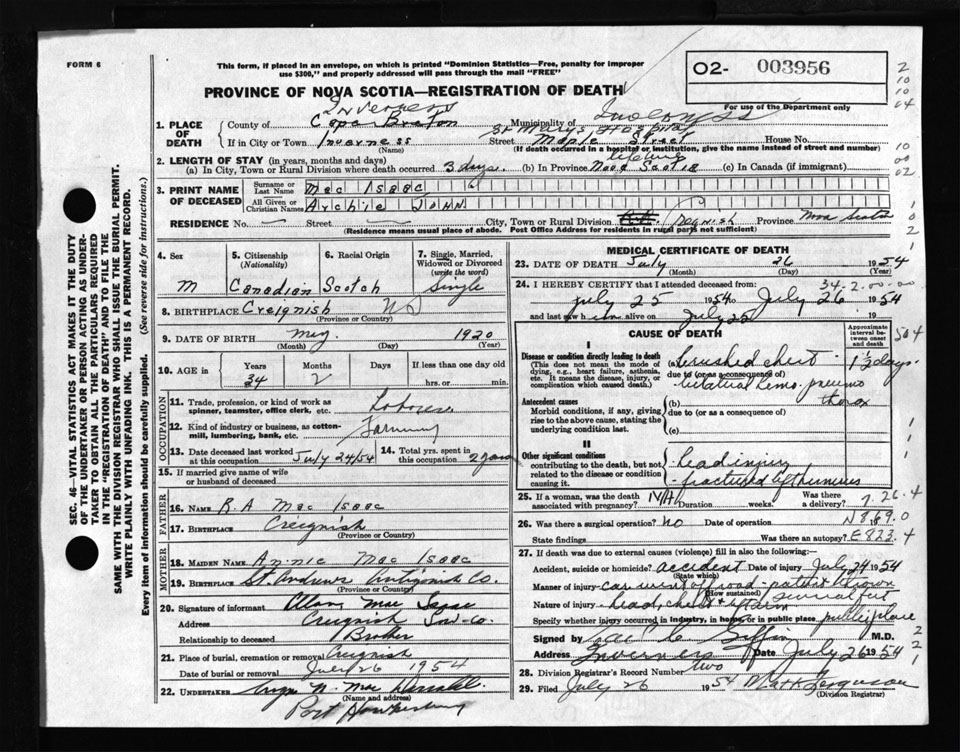 FORM 6
This form, if placed in an envelope, on which is printed "Dominion Statistics—Free, penalty for improper
use $300," and properly addressed will pass through the mail "FREE"
O2- 003956
2
10
10
04
PROVINCE OF NOVA SCOTIA—REGISTRATION OF DEATH
For use of the Department only
1. PLACE OF DEATH
Inverness
County of Cape Breton Municipality of
St Marys Hospital
If in City or Town Inverness Street Maple Street House No.
(Name) (If death occurred in a hospital or institution, give the name instead of street and number)
10
00
02
2. LENGTH OF STAY (in years, months and days) lifetime
(a) In City, Town or Rural Division where death occurred 3 days. (b) In Province Nova Scotia (c) In Canada (if immigrant)
3. PRINT NAME OF DECEASED
Surname or Last Name Mac Isaac
All Given or Christian Names Archie John
1
0
0
2
RESIDENCE No. — Street — City, Town or Rural Division Creignish Province Nova Scotia
(Residence means usual place of abode. Post Office Address for residents in rural parts not sufficient)
1
SEC. 46—VITAL STATISTICS ACT MAKES IT THE DUTY
OF THE UNDERTAKER OR PERSON ACTING AS UNDER-
TAKER TO OBTAIN ALL THE PARTICULARS REQUIRED
IN THE "REGISTRATION OF DEATH" AND TO FILE THE
SAME WITH THE DIVISION REGISTRAR WHO SHALL ISSUE THE BURIAL PERMIT.
WRITE PLAINLY WITH UNFADING INK. THIS IS A PERMANENT RECORD.
Every item of information should be carefully supplied. (See reverse side for instructions.)
4. Sex
M
5. Citizenship
(Nationality)
Canadian
6. Racial Origin
Scotch
7. Single, Married,
Widowed or Divorced
(write the word)
Single
8. BIRTHPLACE Creignish NS
(Province or Country)
9. DATE OF BIRTH May 1920
(Month) (Day) (Year)
10. AGE in Years Months Days If less than one day old
34 2 hrs. or min.
OCCUPATION
11. Trade, profession, or kind of work as
spinner, teamster, office clerk, etc. Laborer
12. Kind of industry or business, as cotton-
mill, lumbering, bank, etc. Farming
13. Date deceased last worked
at this occupation July 24/54
14. Total yrs. spent in
this occupation 2 years
15. If married give name of wife
or husband of deceased
FATHER
16. NAME R.A Mac Isaac
17. BIRTHPLACE Creignish
(Province or Country)
MOTHER
18. MAIDEN NAME Annie Mac Isaac
19. BIRTHPLACE St. Andrews Antigonish Co.
(Province or Country)
20. Signature of informant Mac Isaac
Address Creignish Inv-Co.
Relationship to deceased Brother
21. Place of burial, cremation or removal Creignish
Date of burial or removal July 26 1954
22. UNDERTAKER N. Mac Donald.
(Name and address)
Port Hawkesbury
MEDICAL CERTIFICATE OF DEATH
23. DATE OF DEATH July 26 1954
(Month) (Day) (Year)
34-2.00-00
24. I HEREBY CERTIFY that I attended deceased from:
July 25 1954 to July 26 1954
and last saw him alive on July 25
504
CAUSE OF DEATH
Approximate
interval be-
tween onset
and death
I
Disease or condition directly leading to death
(This does not mean the mode of
dying, e.g., heart failure, asthenia,
etc. It means the disease, injury, or
complication which caused death.)
(a) Crushed chest 1½ days
due to (or as a consequence of)
bilateral hemo pneumo
thorax
Antecedent causes
Morbid conditions, if any, giving
rise to the above cause, stating the
underlying condition last.
(b)
due to (or as a consequence of)
(c)
II
Other significant conditions
contributing to the death, but not
related to the disease or condition
causing it.
head injury
fractured left humerus
25. If a woman, was the death Was there
associated with pregnancy? Duration weeks. a delivery?
7.26.4
N869.0
26. Was there a surgical operation? No Date of operation
State findings Was there an autopsy?
E823.4
27. If death was due to external causes (violence) fill in also the following:—
Accident, suicide or homicide? accident Date of injury July 24 1954
(State which)
Manner of injury car went off road - patient thrown
(How sustained) several feet
Nature of injury head, chest & left arm
Specify whether injury occurred in industry, in home, or in public place public place
Signed by M.D.
Address Inverness Date July 26 1954
2
2
1
28. Division Registrar's Record Number two
29. Filed July 26 1954 Ferguson
(Division Registrar)